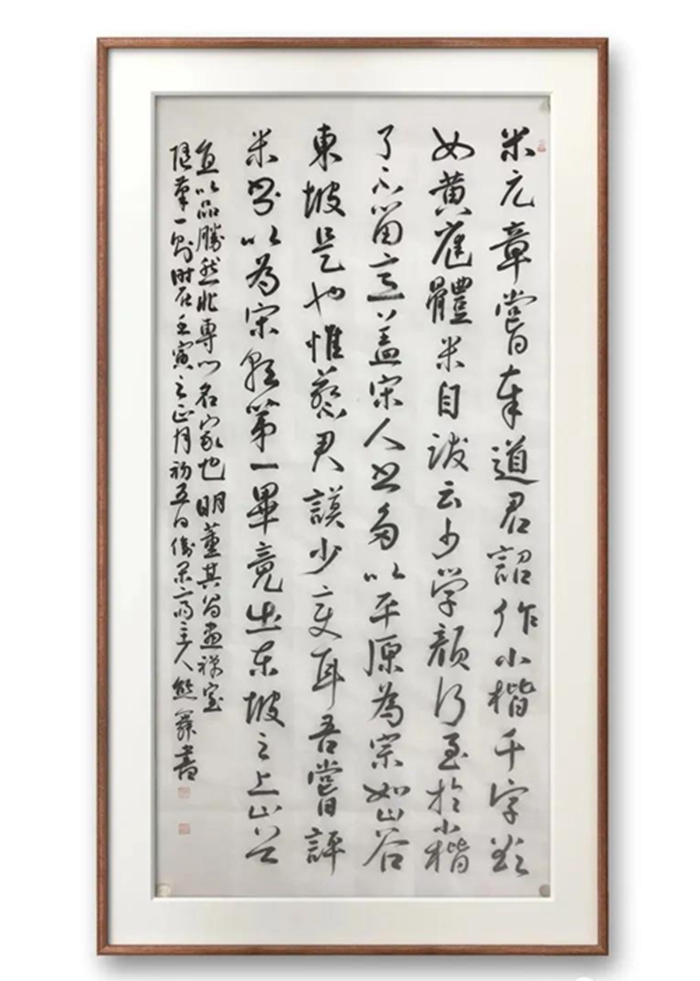 米元章嘗奉道君詔作小楷千字欲
如黄庭體米自跋云少学顔行至於小楷
了不留意盖宋人书多以平原為宗如山谷
東坡是也惟蔡君謨少变耳吾嘗評
米书以為宋朝第一畢竟出东坡之上山谷
直以品勝然非專以名家也明董其昌画禅室
随筆一则时在壬寅之正月初五日斋主人熊書